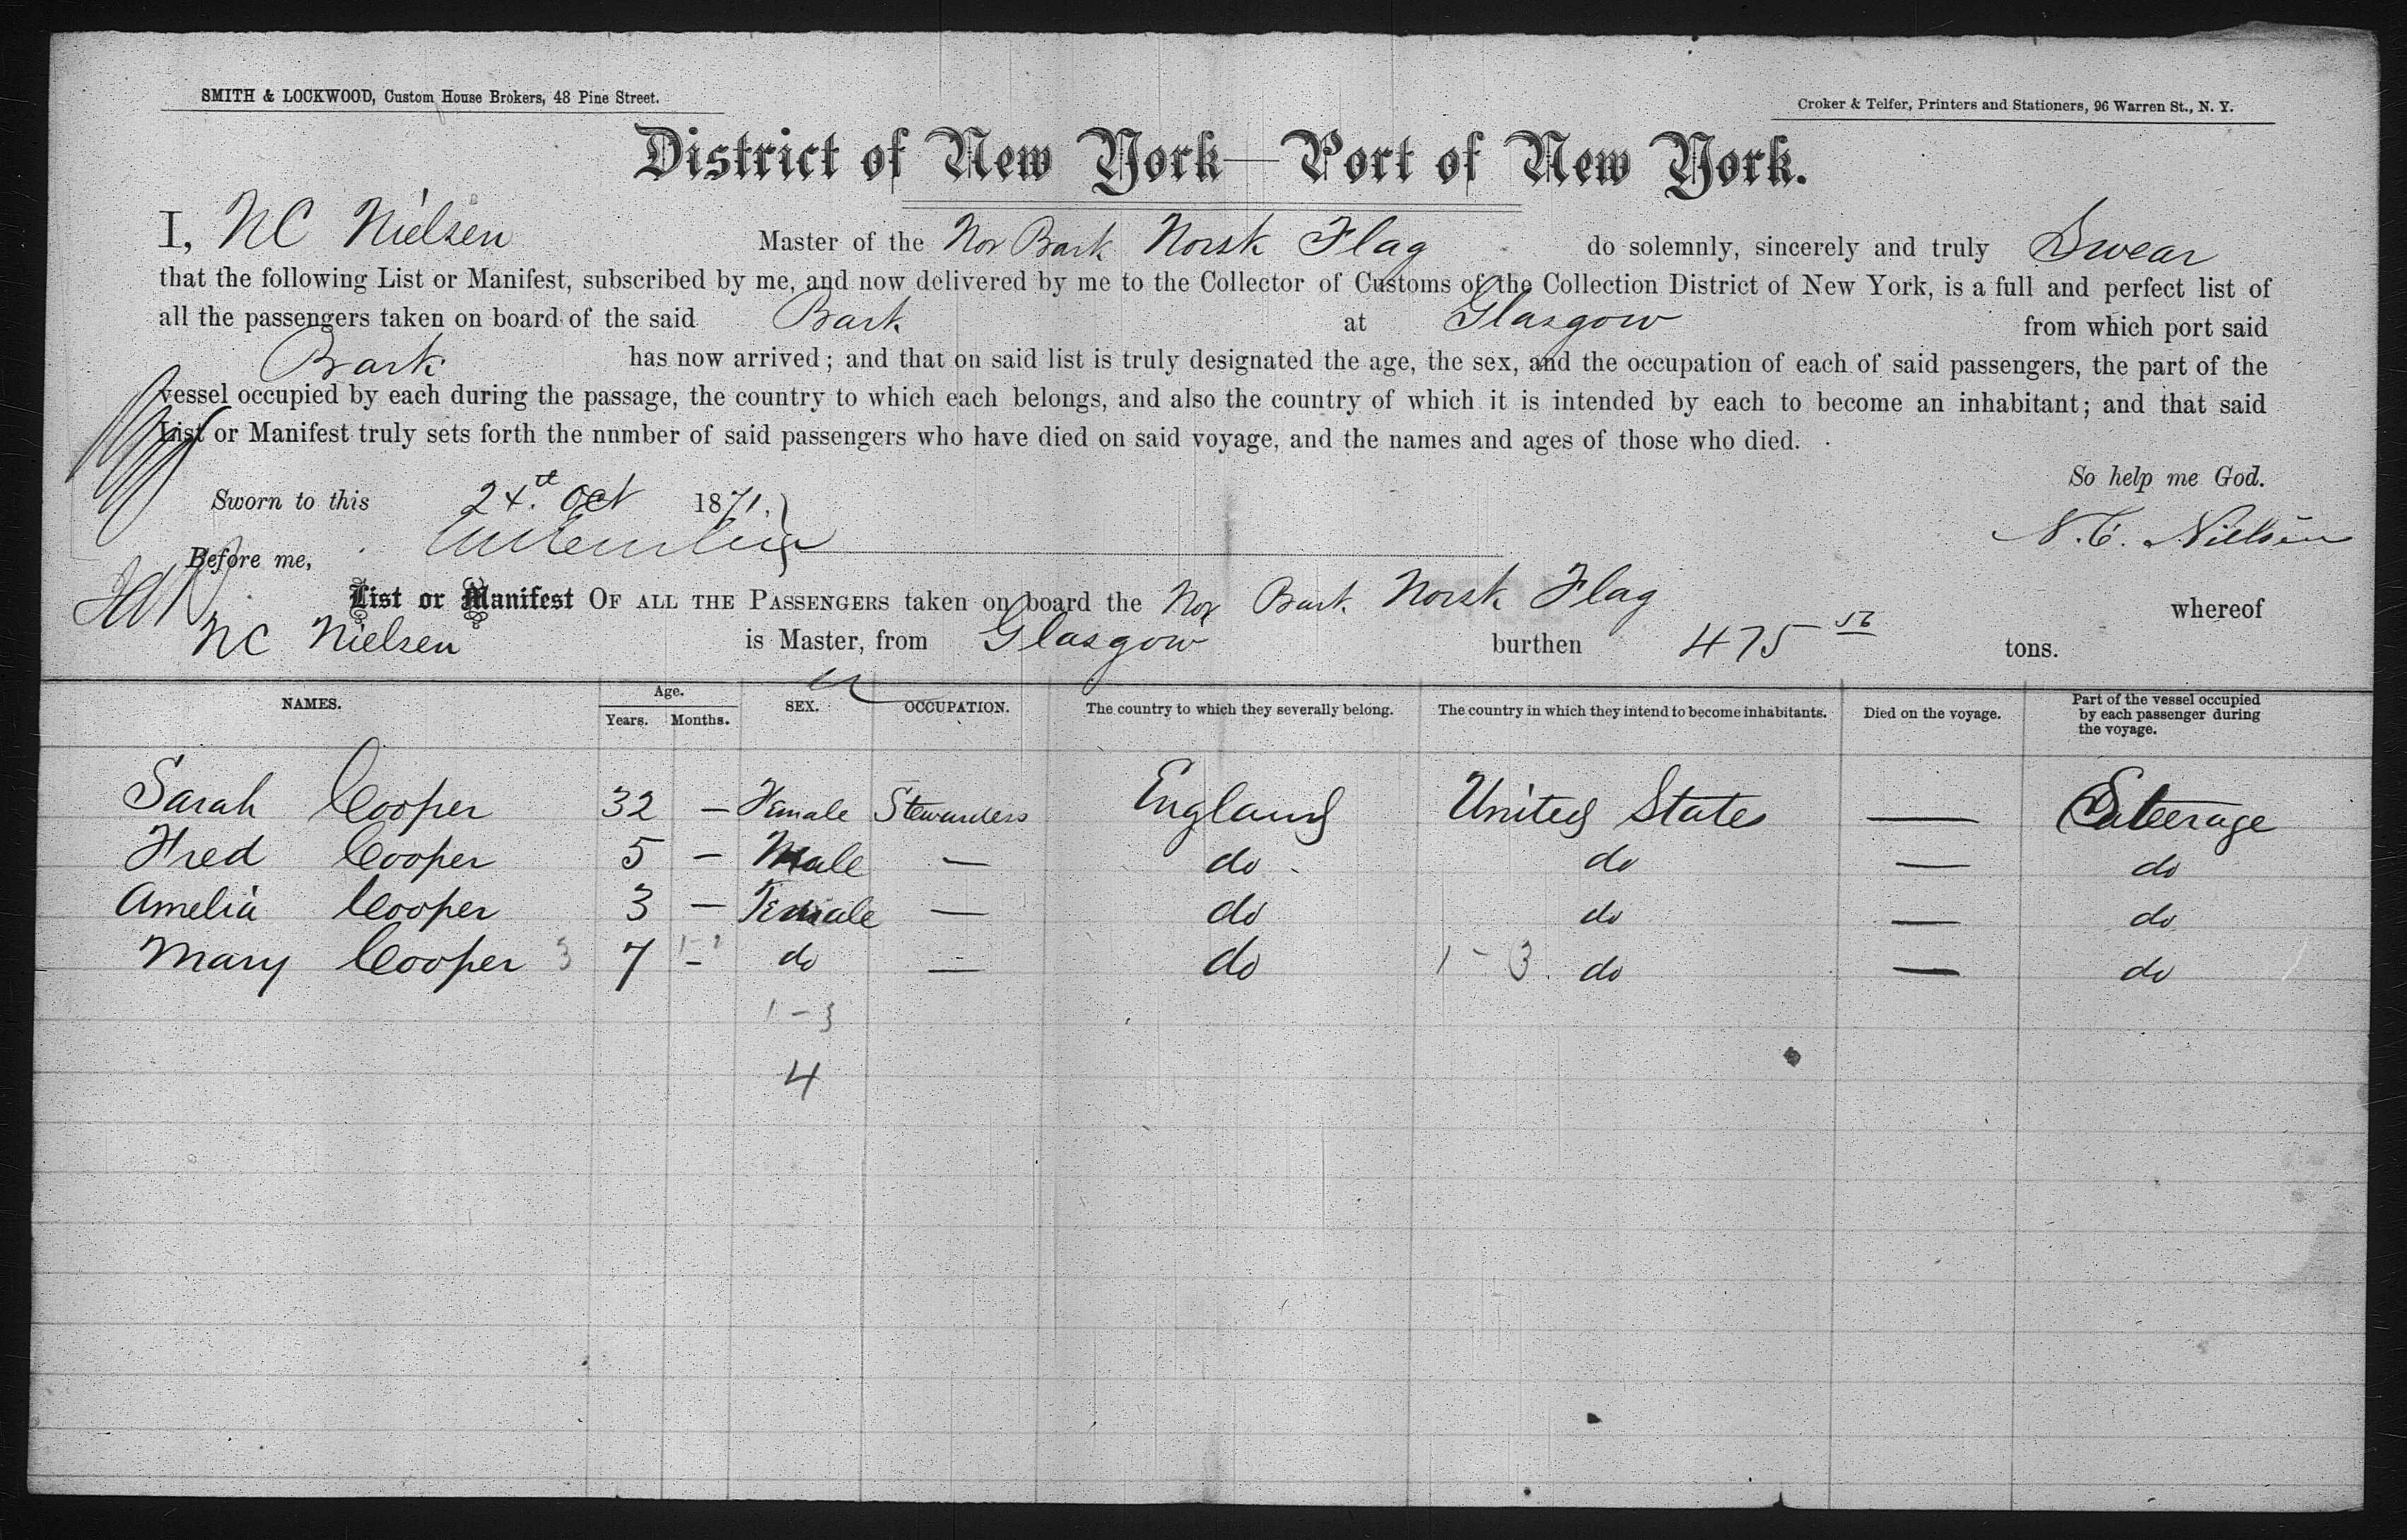 SMITH & LOCKWOOD, Custom House Brokers, 48 Pine Street.
Croker & Telfer, Printers and Stationers, 96 Warren St., N. Y.
District of New York—Port of New York.
I, NC Nielsen Master of the Nor Bark Norsk Flag do solemnly, sincerely and truly Swear
that the following List or Manifest, subscribed by me, and now delivered by me to the Collector of Customs of the Collection District of New York, is a full and perfect list of
all the passengers taken on board of the said Bark at Glasgow from which port said
Bark has now arrived; and that on said list is truly designated the age, the sex, and the occupation of each of said passengers, the part of the
vessel occupied by each during the passage, the country to which each belongs, and also the country of which it is intended by each to become an inhabitant; and that said
List or Manifest truly sets forth the number of said passengers who have died on said voyage, and the names and ages of those who died.
So help me God.
Sworn to this 24th Oct 1871.
N. C. Nielsen
Before me,
List or Manifest OF ALL THE PASSENGERS taken on board the Nor Bark Norsk Flag whereof
NC Nielsen is Master, from Glasgow burthen 475 56 tons.
NAMES. Age. Years. Months. SEX. OCCUPATION. The country to which they severally belong. The country in which they intend to become inhabitants. Died on the voyage. Part of the vessel occupied by each passenger during the voyage.
Sarah Cooper 32 — Female Stewardess England United States — Steerage
Fred Cooper 5 — Male — do do — do
Amelia Cooper 3 — Female — do do — do
Mary Cooper 3 7 - do — do 1 - 3 do — do
1 - 3
4